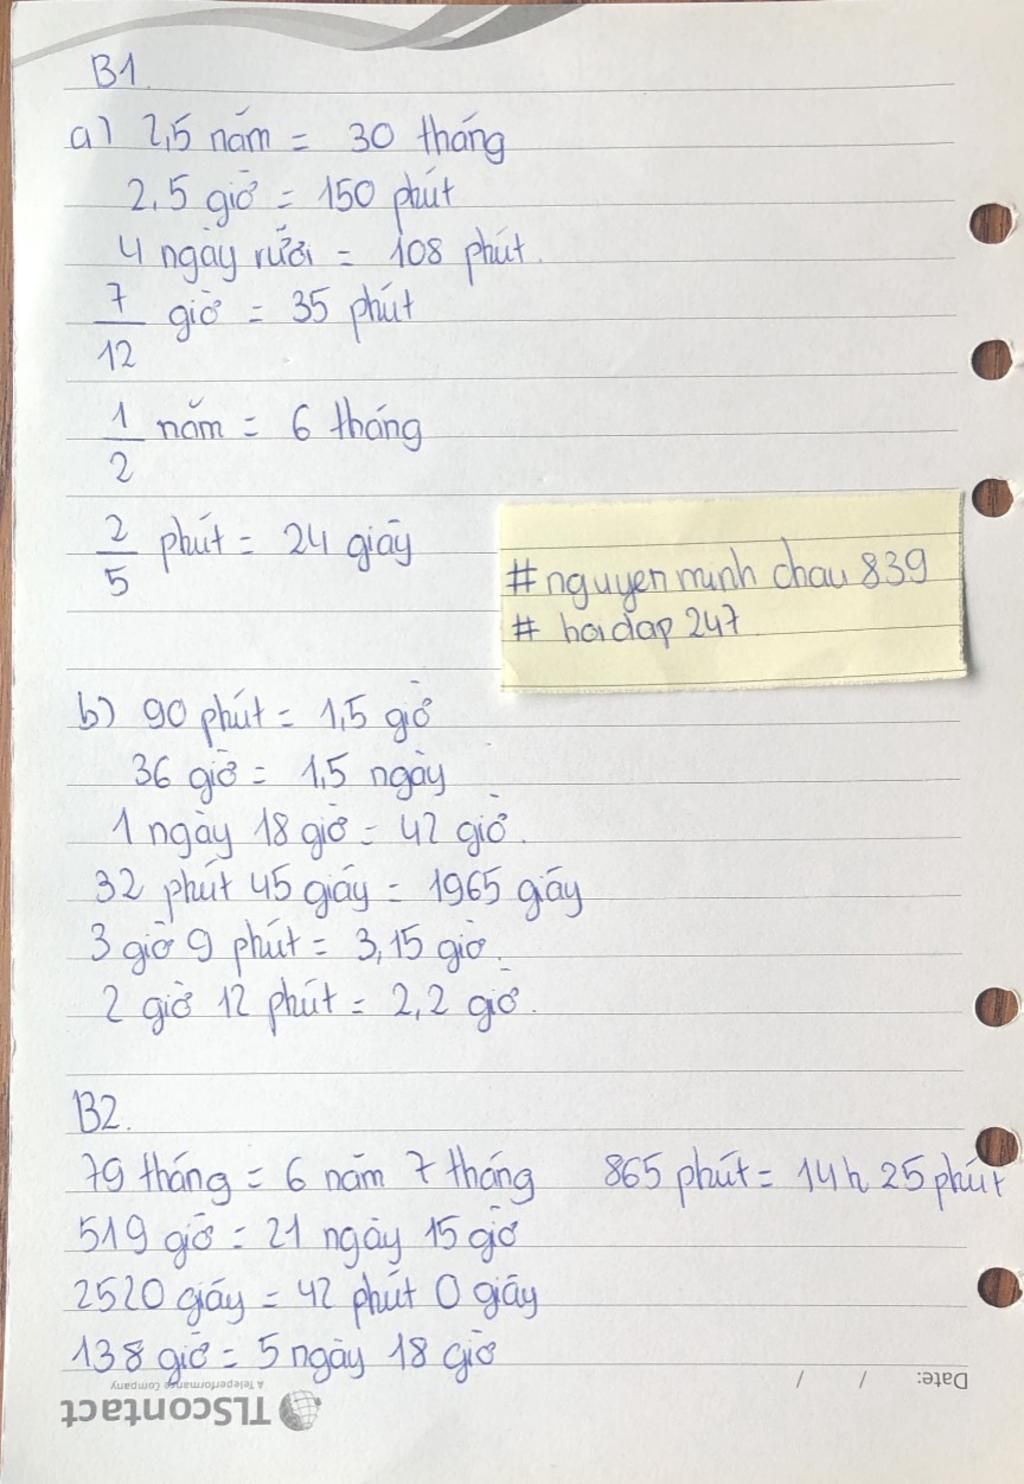 B1.
a) 2,5 năm = 30 tháng
2,5 giờ = 150 phút
4 ngày rưỡi = 108 phút.
7/12 giờ = 35 phút
1/2 năm = 6 tháng
2/5 phút = 24 giây
#nguyenminh chau 839
# hoidap 247
b) 90 phút = 1,5 giờ
36 giờ = 1,5 ngày
1 ngày 18 giờ = 42 giờ.
32 phút 45 giây = 1965 gây
3 giờ 9 phút = 3,15 giờ.
2 giờ 12 phút = 2,2 giờ.
B2.
79 tháng = 6 năm 7 tháng 865 phút = 14h 25 phút
519 giờ = 21 ngày 15 giờ
2520 giây = 42 phút 0 giây
138 giờ = 5 ngày 18 giờ
Date: / /
A Teleperformance Company
TLScontact